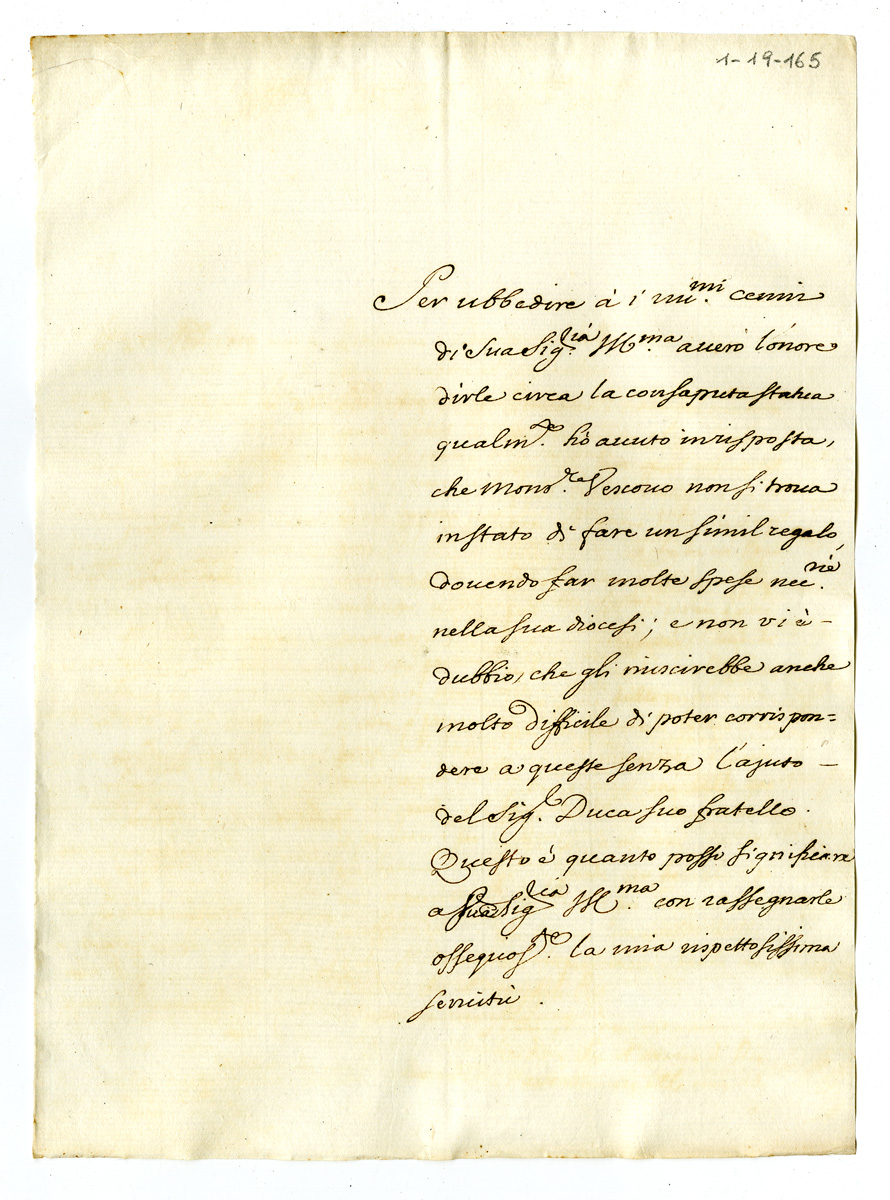 1-19-165
Per ubbedire à i riv.mi cenni
di Sua Sig.ria Ill.ma averò l'onore
dirle circa la consaputa statua
qualm.te hò avuto in risposta,
che Mons.re Vescovo non si trova
in stato di fare un simil regalo,
dovendo far molte spese nec.rie
nella sua diocesi; e non vi è -
dubbio, che gli riuscirebbe anche
molto difficile di poter corrispon=
dere a queste senza l'ajuto -
del Sig.r Duca suo fratello.
Questo è quanto posso significare
a Sua Sig.ria Ill.ma con rassegnarle
ossequios.te la mia rispettosissima
servitù.